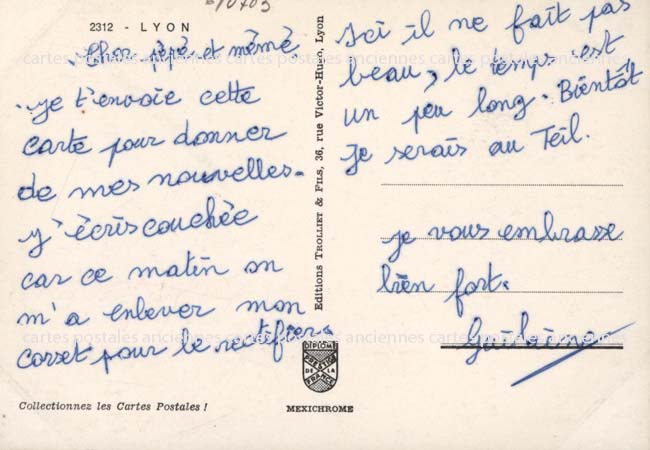 2312 - LYON
Cher pépé et mémé
je t'envoie cette
carte pour donner
de mes nouvelles.
j'écris couchée
car ce matin on
m'a enlever mon
corset pour le rectifier.
Collectionnez les Cartes Postales !
Editions TROLLIET & FILS, 36, rue Victor-Hugo, Lyon
DIPLOME
PRESTIGE
DE LA
FRANCE
MEXICHROME
Ici il ne fait pas
beau, le temps est
un peu long. Bientôt
je serais au Teil.
je vous embrasse
bien fort.
Guilaine
cartes postales anciennes cartes postales anciennes cartes postales anciennes
cartes postales anciennes cartes postales anciennes cartes postales anciennes